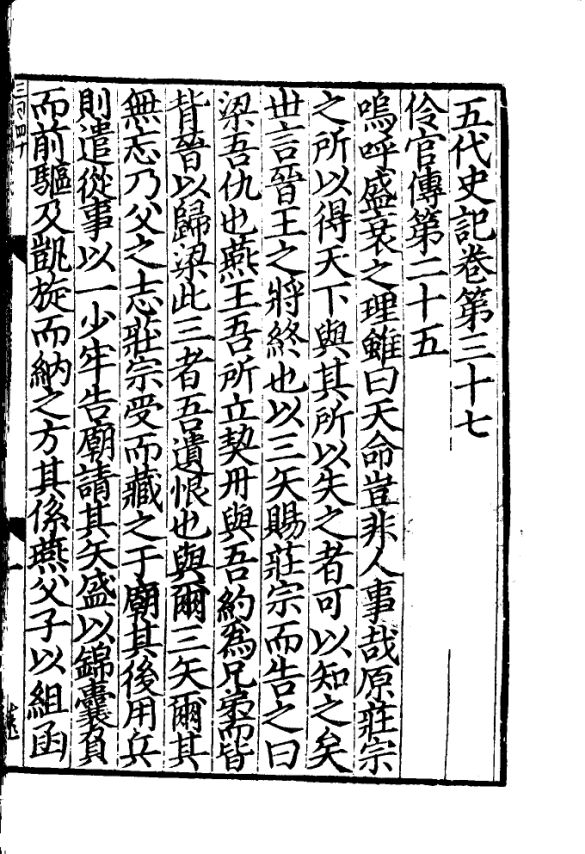 五代史記卷第三十七
伶官傳第二十五
嗚呼盛衰之理雖曰天命豈非人事哉原莊宗
之所以得天下與其所以失之者可以知之矣
世言晉王之將終也以三矢賜莊宗而告之曰
梁吾仇也燕王吾所立契丹與吾約爲兄弟而皆
背晉以歸梁此三者吾遺恨也與爾三矢爾其
無忘乃父之志莊宗受而藏之于廟其後用兵
則遣從事以一少牢告廟請其矢盛以錦囊負
而前驅及凱旋而納之方其係燕父子以組函